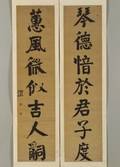 琴德愔於君子度
蕙風微似吉人嗣